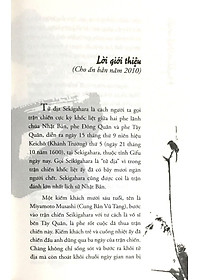 Lời giới thiệu
(Cho ấn bản năm 2010)
Tử địa Sekigahara là cách người ta gọi
trận chiến cực kỳ khốc liệt giữa hai phe lãnh
chúa Nhật Bản, phe Đông Quân và phe Tây
Quân, diễn ra trong hai ngày mùa thu năm thứ 9 niên hiệu
Keichō (Khánh Trường) thứ 5 (ngày 21
tháng 10 năm 1600), tại thuộc tỉnh Gifu
ngày nay. Gọi Sekigahara là "tử địa" vì
trong trận chiến khốc liệt ấy đã có hàng vạn
người chết. Sekigahara cũng được coi là trận
đánh lớn nhất lịch sử Nhật Bản.
Một kiếm khách mười sáu tuổi, sau tên là
Miyamoto Musashi (Cung Bản Vũ Tàng), bước
vào trận chiến Sekigahara với tư cách là võ sĩ
bên Tây Quân, là phe rốt cuộc đã thua trận
chiến này. Kiếm khách trẻ và cuồng nhiệt ấy đã
chiến đấu anh dũng qua ba ngày của trận chiến.
Chàng không chỉ sống sót và bước ra khỏi tử
địa mà còn thoát khỏi chuỗi ngày gian nan bị